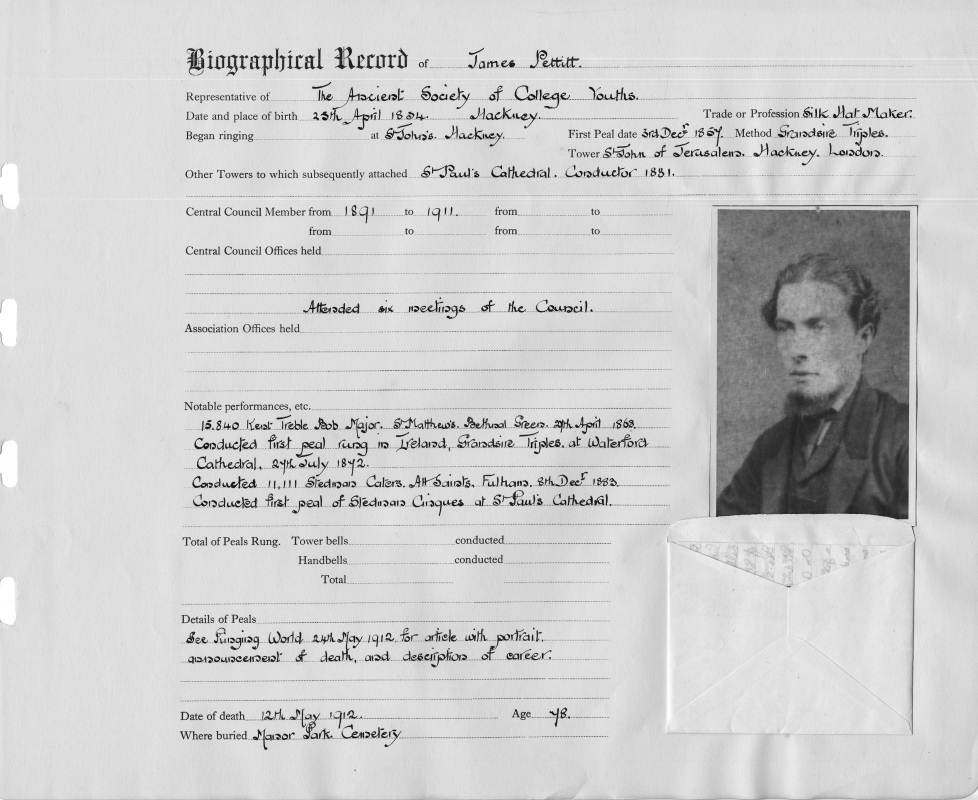 Biographical Record of James Pettitt.
Representative of The Ancient Society of College Youths.
Date and place of birth 25th April 1834. Hackney. Trade or Profession Silk Hat Maker.
Began ringing at St John's. Hackney. First Peal date 3rd Decr 1857. Method Grandsire Triples.
Tower St John of Jerusalem. Hackney. London.
Other Towers to which subsequently attached St Paul's Cathedral. Conductor 1881.
Central Council Member from 1891 to 1911. from to
from to from to
Central Council Offices held
Attended six meetings of the Council.
Association Offices held
Notable performances, etc.
15.840 Kent Treble Bob Major. St Matthew's. Bethnal Green. 27th April 1868.
Conducted first peal rung in Ireland, Grandsire Triples. at Waterford
Cathedral. 27th July 1872.
Conducted 11,111 Stedman Caters. All Saints, Fulham. 8th Decr 1883.
Conducted first peal of Stedman Cinques at St Paul's Cathedral.
Total of Peals Rung. Tower bells conducted
Handbells conducted
Total
Details of Peals
See Ringing World 24th May 1912. for article with portrait.
announcement of death, and description of career.
Date of death 12th May 1912. Age 78.
Where buried Manor Park Cemetery